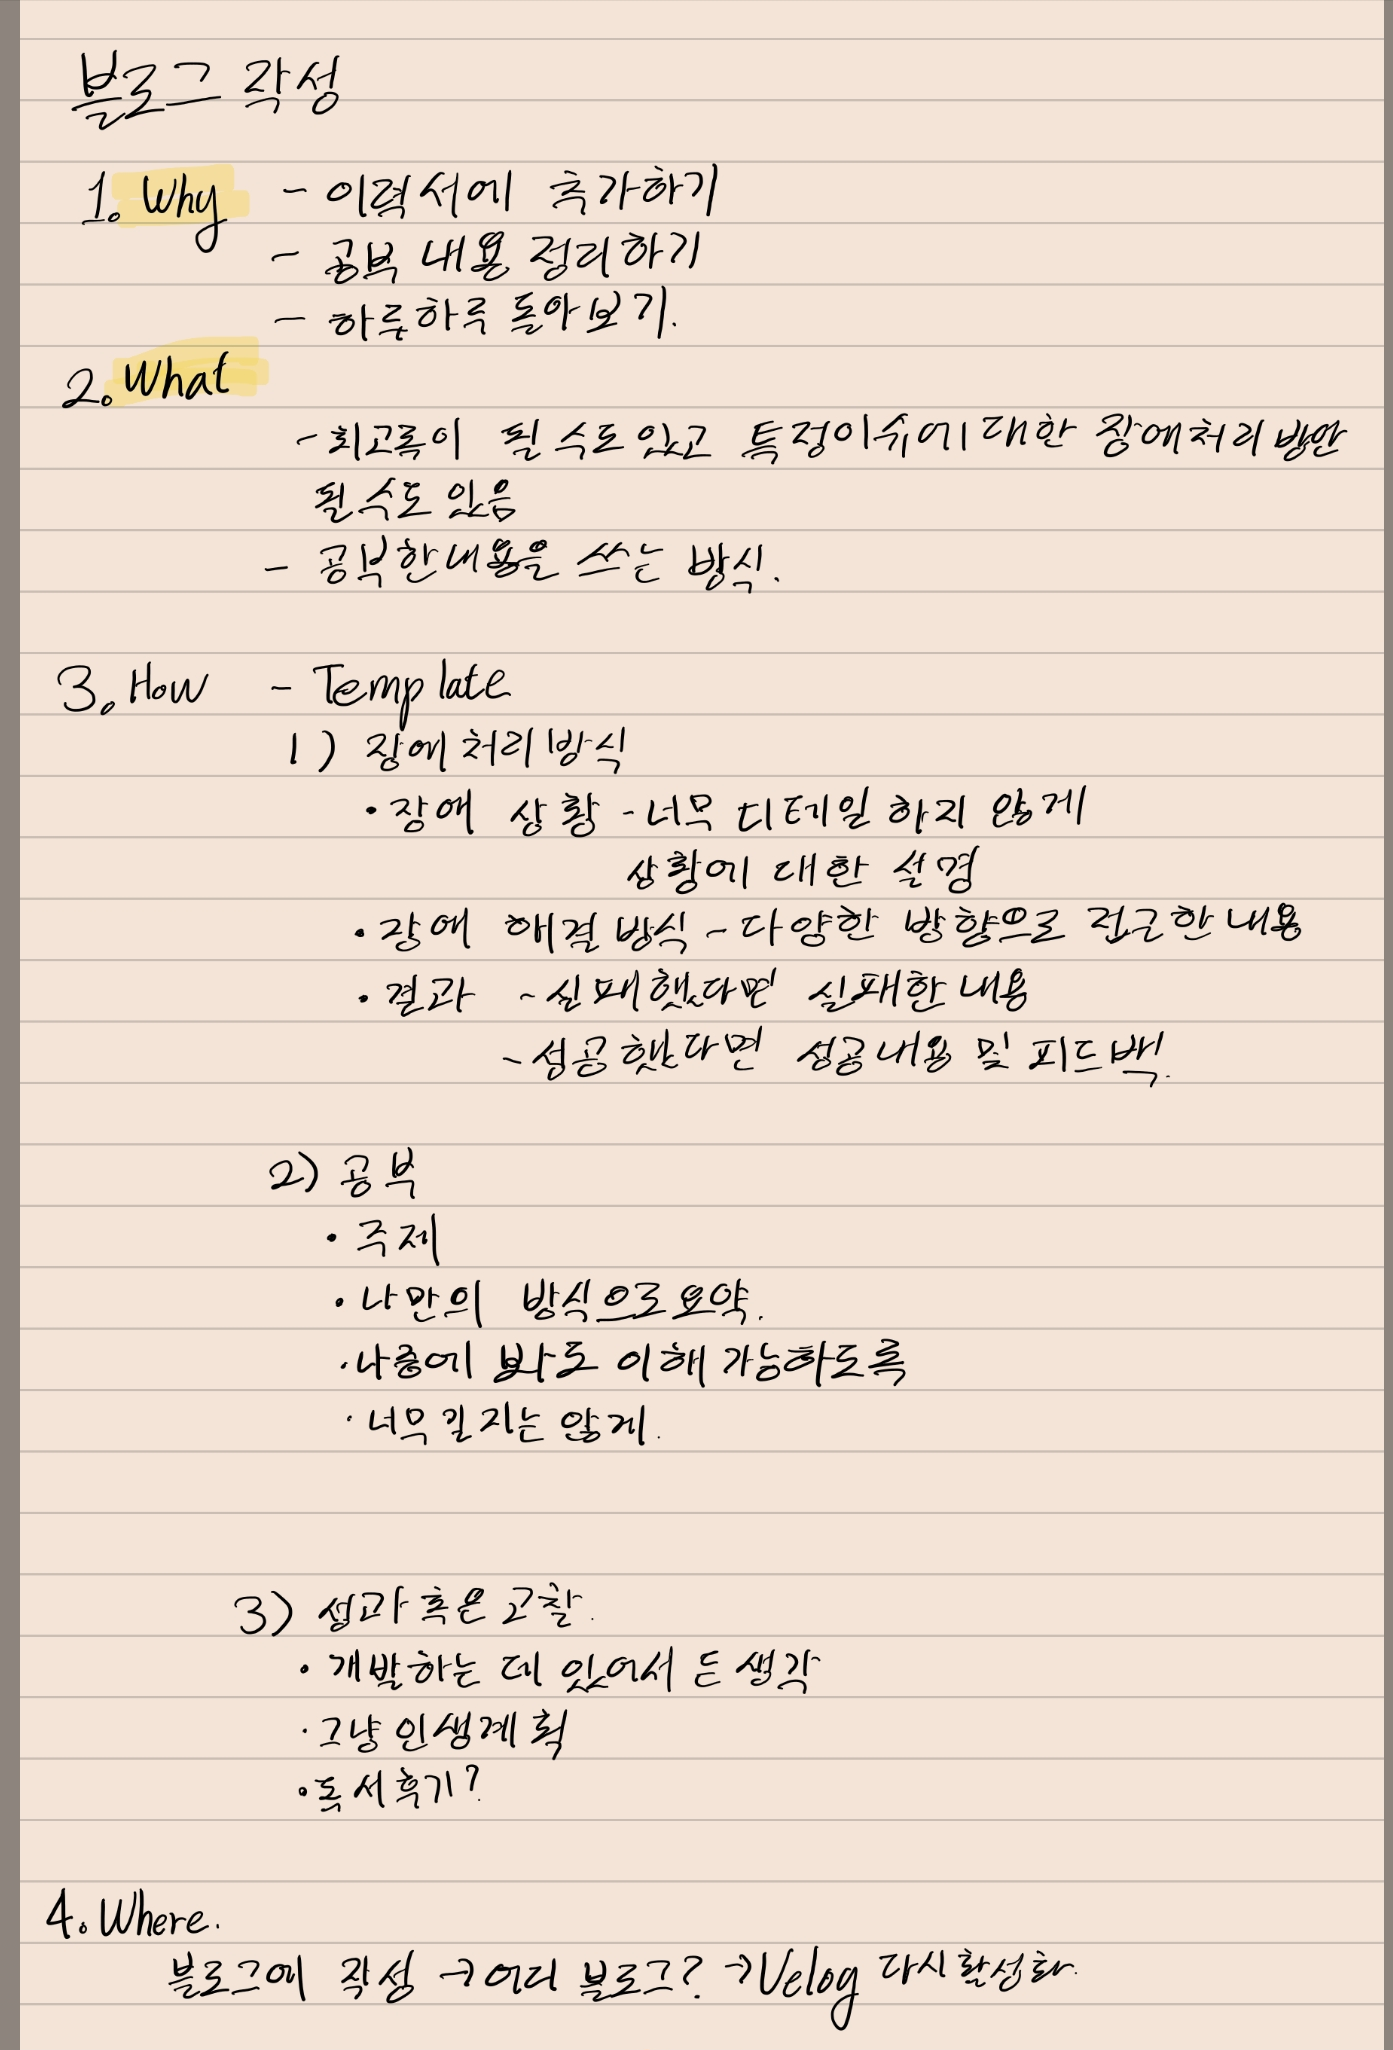 블로그 작성
1. Why - 이력서에 추가하기
- 공부 내용 정리하기
- 하루하루 돌아보기.
2. What
- 회고록이 될 수도 있고 특정이슈에 대한 장애처리 방안
될 수도 있음
- 공부한 내용을 쓰는 방식.
3. How - Template
1) 장애 처리 방식
• 장애 상황 - 너무 디테일 하지 않게
상황에 대한 설명
• 장애 해결 방식 - 다양한 방향으로 접근한 내용
• 결과 - 실패했다면 실패한 내용
- 성공했다면 성공내용 및 피드백.
2) 공부
• 주제
• 나만의 방식으로 요약.
• 나중에 봐도 이해 가능하도록
• 너무 길지는 않게.
3) 성과 혹은 고찰.
• 개발하는 데 있어서 든 생각
• 그냥 인생계획
• 독서후기?
4. Where.
블로그에 작성 → 어디 블로그? → Velog 다시 활성화.